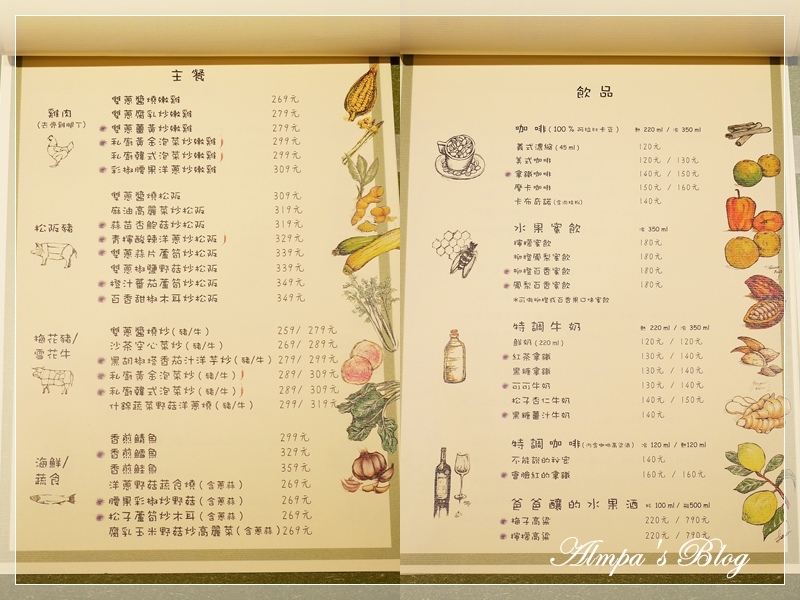 主餐
雞肉
(去骨雞腿丁)
雙蔥醬燒嫩雞 269元
雙蔥腐乳炒嫩雞 279元
雙蔥薑黃炒嫩雞 279元
私廚黃金泡菜炒嫩雞 299元
私廚韓式泡菜炒嫩雞 299元
彩椒腰果洋蔥炒嫩雞 309元
松阪豬
雙蔥醬燒松阪 309元
麻油高麗菜炒松阪 319元
蒜苗杏鮑菇炒松阪 319元
青檸酸辣洋蔥炒松阪 329元
雙蔥蒜片蘆筍炒松阪 339元
雙蔥椒鹽野菇炒松阪 339元
橙汁蕃茄蘆筍炒松阪 349元
百香甜椒木耳炒松阪 349元
梅花豬/
雪花牛
雙蔥醬燒炒(豬/牛) 259/ 279元
沙茶空心菜炒(豬/牛) 269/ 289元
黑胡椒塔香茄汁洋芋炒(豬/牛) 279/ 299元
私廚黃金泡菜炒(豬/牛) 289/ 309元
私廚韓式泡菜炒(豬/牛) 289/ 309元
什錦蔬菜野菇洋蔥燒(豬/牛) 299/ 319元
海鮮/
蔬食
香煎鯖魚 299元
香煎鱸魚 329元
香煎鮭魚 359元
洋蔥野菇蔬食燒(含蔥蒜) 269元
腰果彩椒炒野菇(含蔥蒜) 269元
松子蘆筍炒木耳(含蔥蒜) 269元
腐乳玉米野菇炒高麗菜(含蔥蒜) 269元
飲品
咖啡(100%阿拉比卡豆) 熱 220 ml / 冰 350 ml
義式濃縮(45 ml) 120元
美式咖啡 120元 / 130元
拿鐵咖啡 140元 / 150元
摩卡咖啡 150元 / 160元
卡布奇諾(含肉桂粉) 140元
水果蜜飲 冰 350 ml
檸檬蜜飲 180元
柳橙鳳梨蜜飲 180元
柳橙百香蜜飲 180元
鳳梨百香蜜飲 180元
*可做柳橙或百香果口味蜜飲
特調牛奶 熱 220 ml / 冰 350 ml
鮮奶(220 ml) 120元 / 120元
紅茶拿鐵 130元 / 140元
黑糖拿鐵 130元 / 140元
可可牛奶 130元 / 140元
松子杏仁牛奶 140元 / 150元
黑糖薑汁牛奶 140元
特調咖啡(內含咖啡高粱酒) 冰 120 ml / 熱120 ml
不能說的秘密 140元
蜜臉紅的拿鐵 160元 / 160元
爸爸釀的水果酒 杯 100 ml / 瓶500 ml
梅子高粱 220元 / 790元
檸檬高粱 220元 / 790元
Almpa's Blog